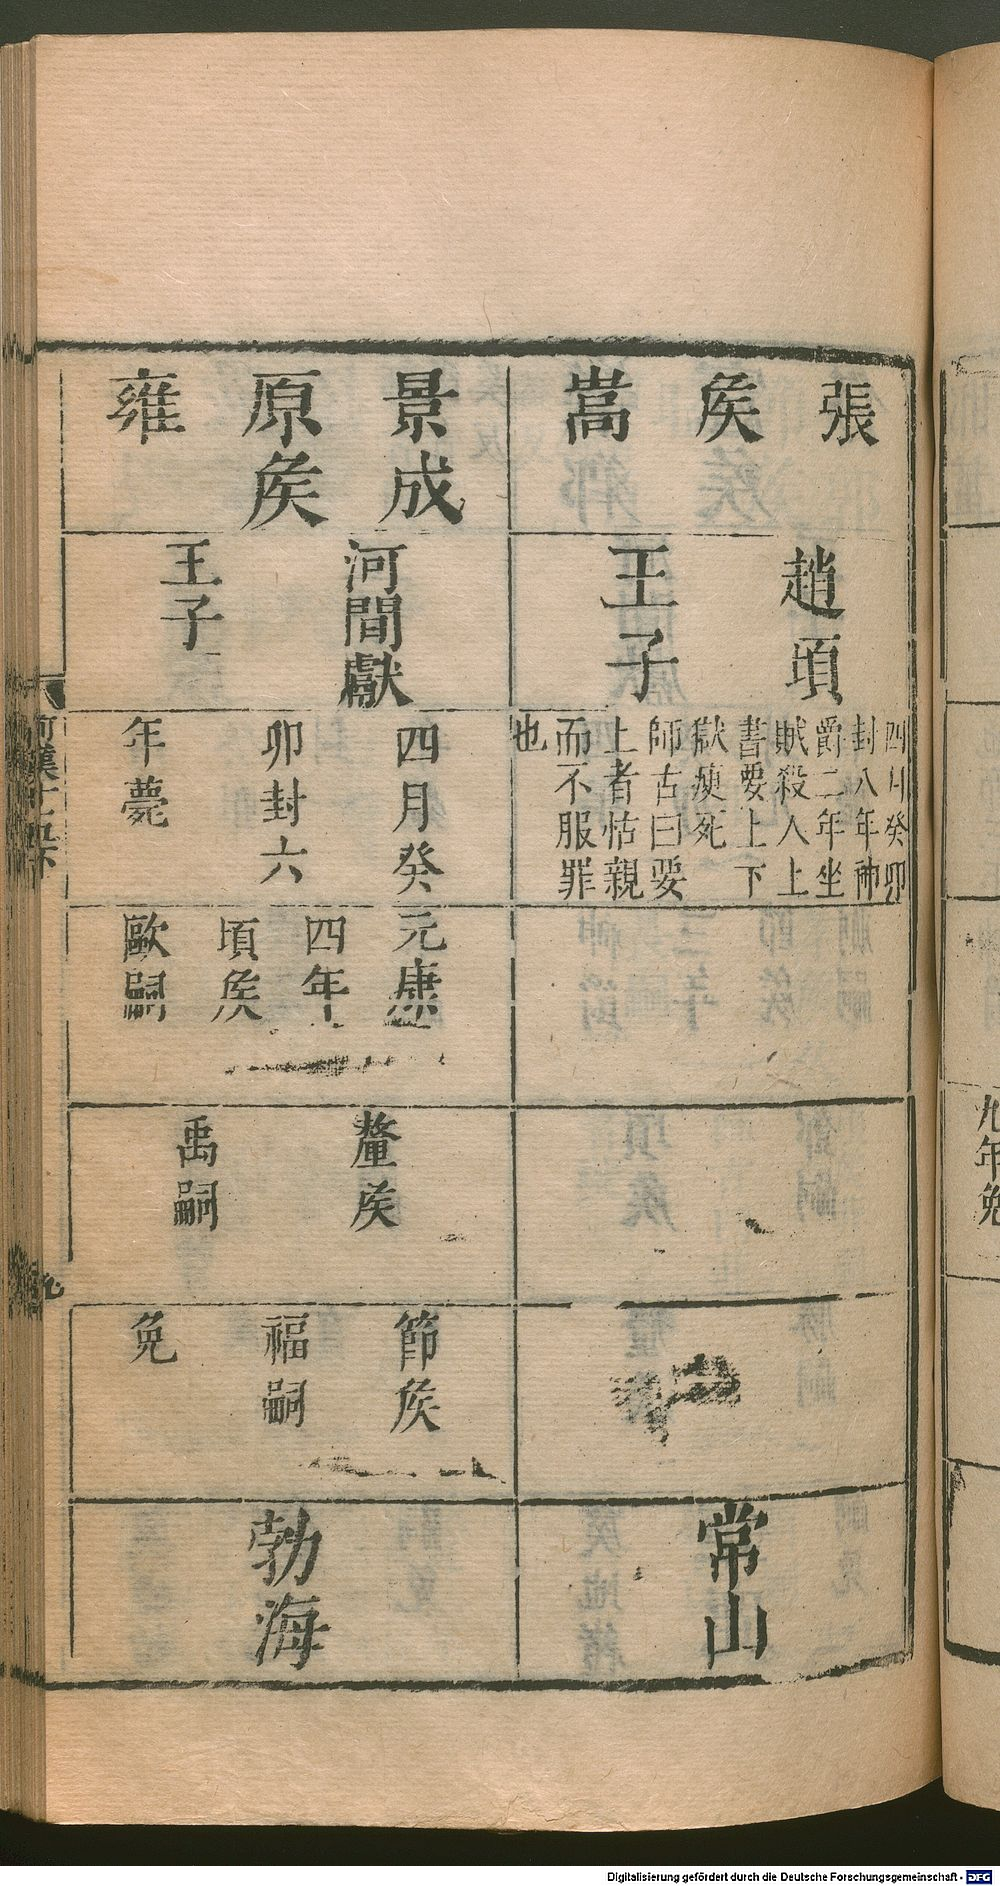 張
矦
嵩
趙頃
王子
四月癸卯
封八年神
爵二年坐
賊殺人上
書要上下
獄瘐死
師古曰要
上者怙親
而不服罪
也
常山
景成
原矦
雍
河間獻
王子
四月癸
卯封六
年薨
元康
四年
頃矦
歐嗣
釐矦
禹嗣
節矦
福嗣
免
勃海
九年免
Digitalisierung gefördert durch die Deutsche Forschungsgemeinschaft - DFG